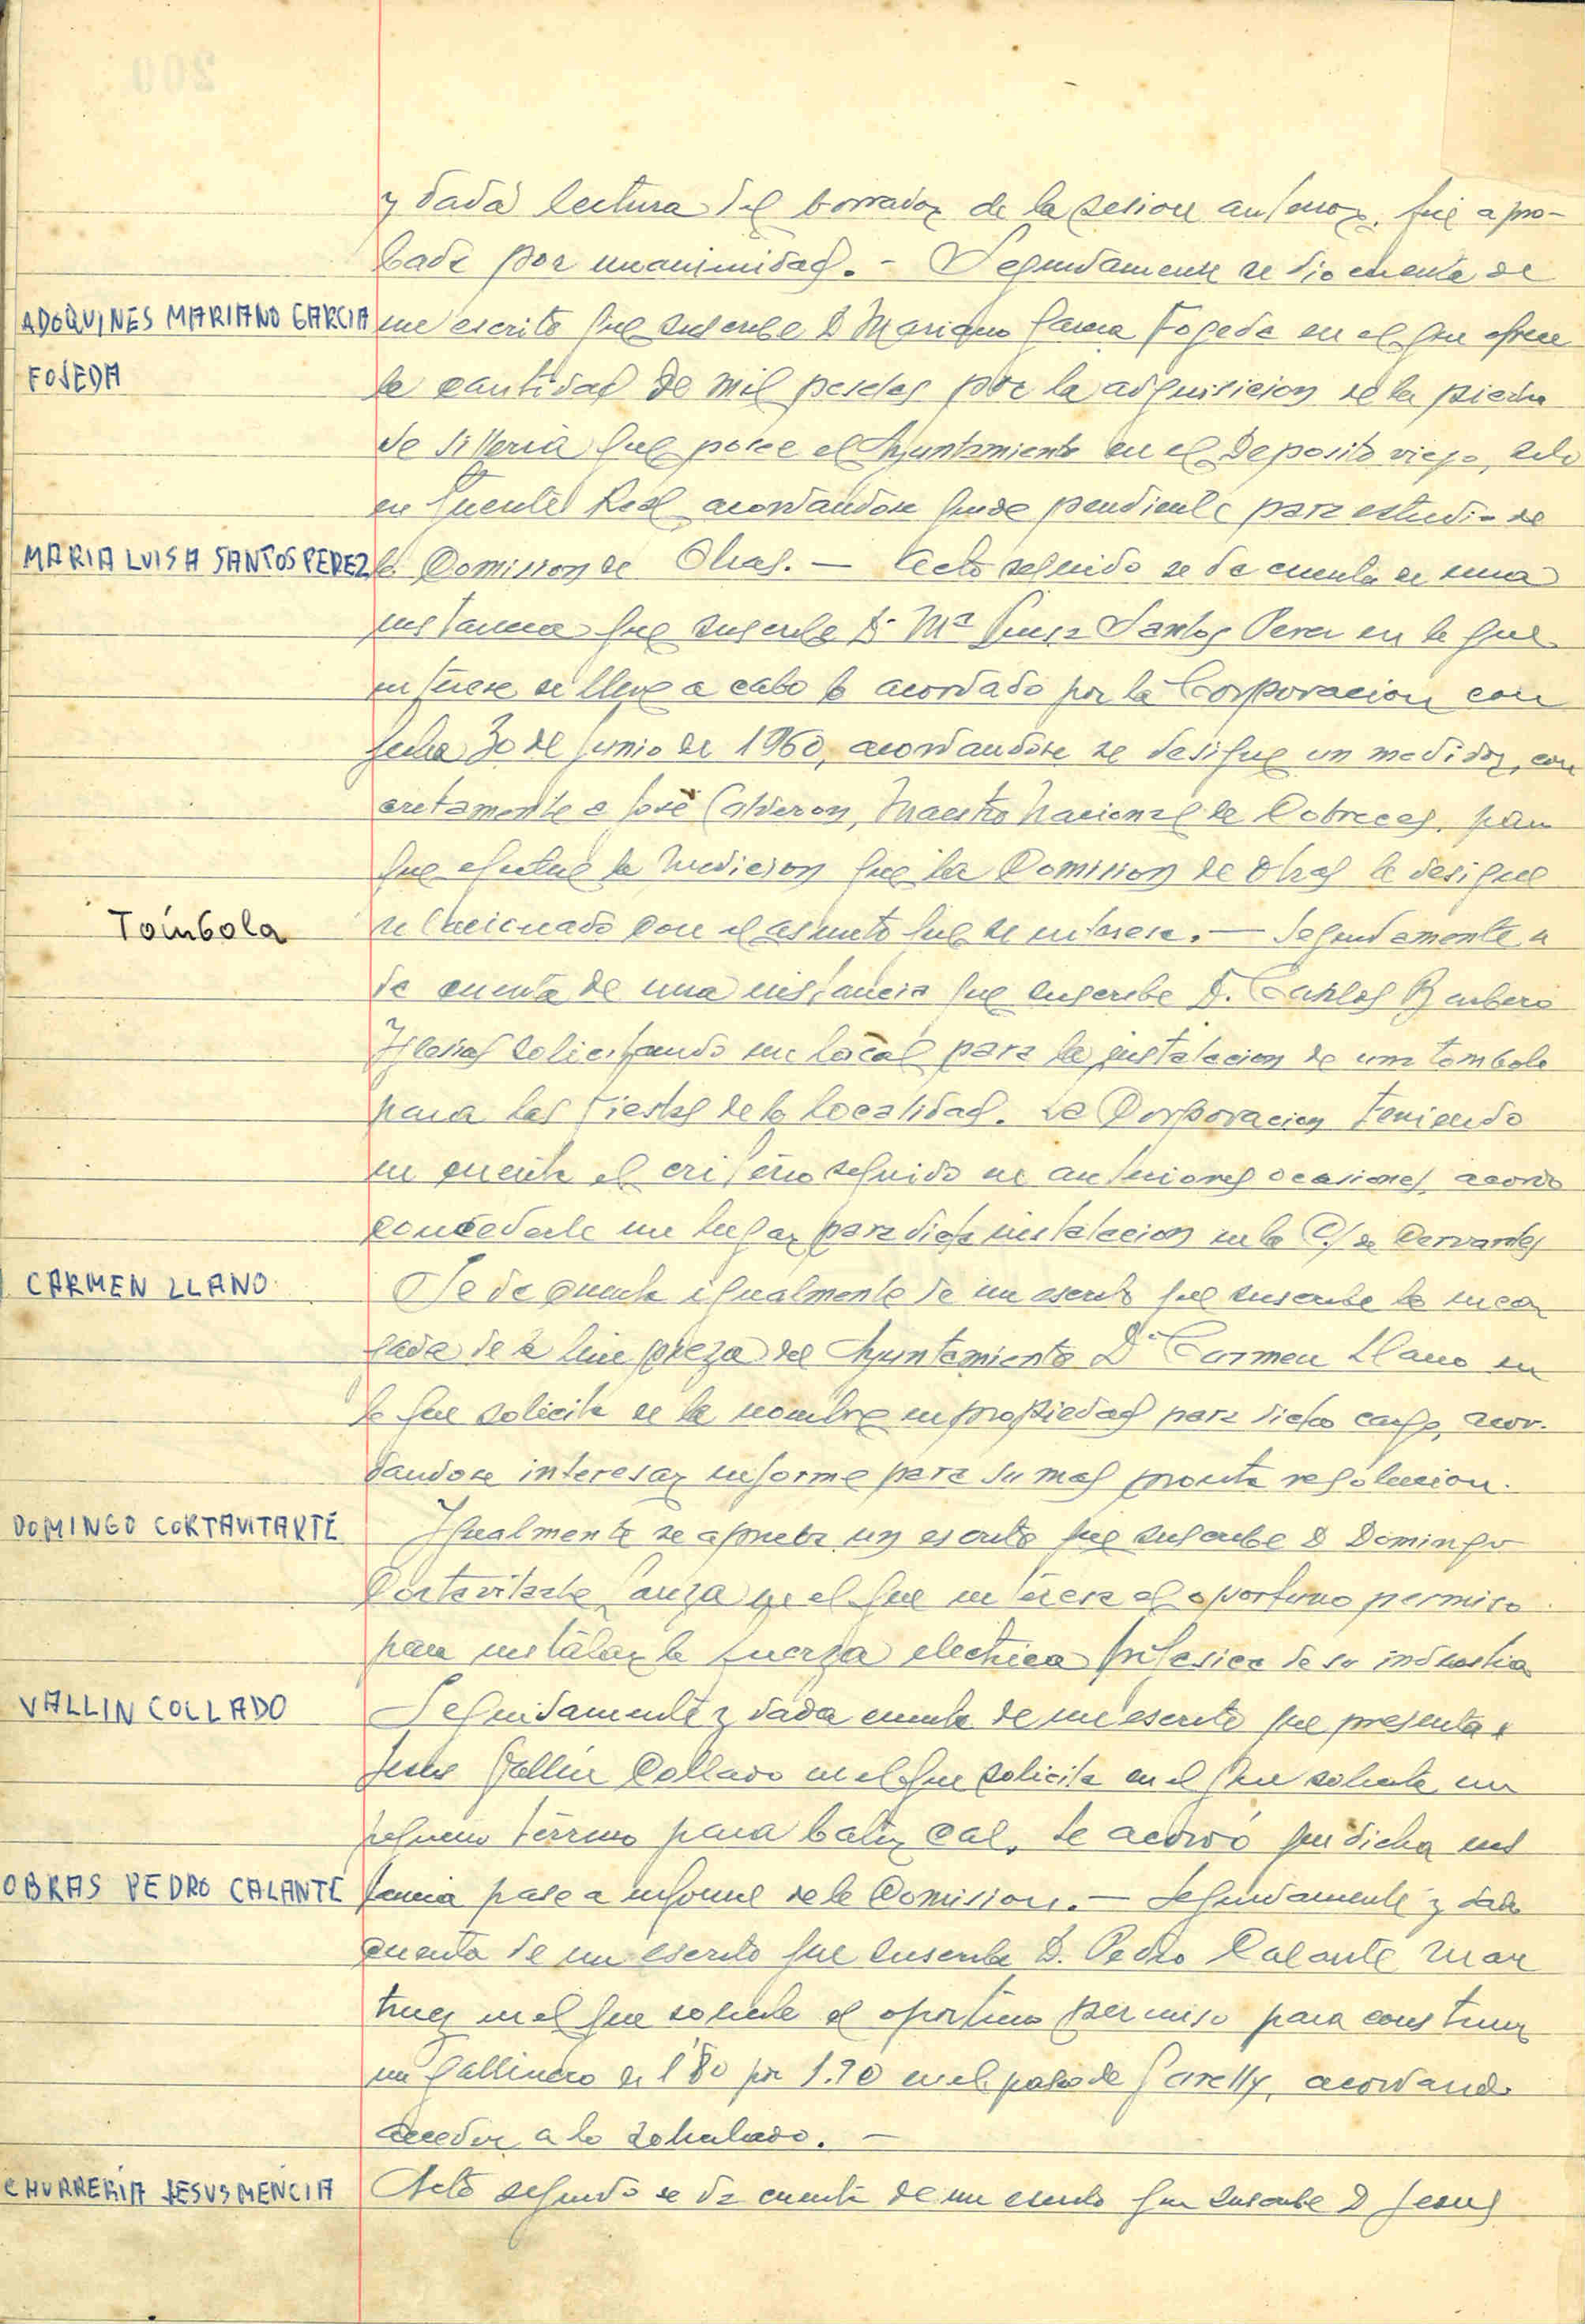 y dada lectura del borrador de la sesion anterior, fue apro-
bada por unanimidad. - Seguidamente se dio cuenta de
ADOQUINES MARIANO GARCIA
un escrito que suscribe D Mariano Garcia Fojeda en el que ofrece
FOJEDA
la cantidad de mil pesetas por la adquisicion de la piedra
de silleria que posee el Ayuntamiento en el Deposito viejo, sito
en Fuente Real acordandose quede pendiente para estudio de
MARIA LUISA SANTOS PEREZ
la Comision de Obras. — Acto seguido se da cuenta de una
instancia que suscribe Dª Mª Luisa Santos Perez en la que
interesa se lleve a cabo lo acordado por la Corporacion con
fecha 30 de Junio de 1960, acordandose se designe un medidor, con
cretamente a José Calderon, Maestro Nacional de Cobreces, para
que efectue la medicion que la Comision de Obras le designe
Tómbola
relacionado con el asunto que se interesa. — Seguidamente se
da cuenta de una instancia que suscribe D. Carlos Barbero
Iglesias solicitando un local para la instalacion de una tombola
para las fiestas de la localidad. La Corporacion teniendo
en cuenta el criterio seguido en anteriores ocasiones, acordo
concederle un lugar para dicha instalacion en la C/ de Cervantes
CARMEN LLANO
Se da cuenta igualmente de un escrito que suscribe la encar
gada de la limpieza del Ayuntamiento Dª Carmen Llano en
la que solicita se la nombre en propiedad para dicho cargo, acor-
dandose interesar informe para su mas pronta resolucion.
DOMINGO CORTAVITARTE
Igualmente se aprueba un escrito que suscribe D Domingo
Cortavitarte Lanza en el que interesa el oportuno permiso
para instalar la fuerza electrica trifasica de su industria
VALLIN COLLADO
Seguidamente y dada cuenta de un escrito que presenta
Jesus Vallin Collado en el que solicita en el que solicita un
pequeño terreno para batir cal, se acordó que dicha ins
OBRAS PEDRO CALANTE
tancia pase a informe de la Comision. — Seguidamente y dada
cuenta de un escrito que suscribe D. Pedro Calante Mar
tinez en el que solicita el oportuno permiso para construir
un gallinero de 1'80 por 1.20 en el paseo de Garelly, acordando
acceder a lo solicitado. —
CHURRERIA JESUS MENCIA
Acto seguido se da cuenta de un escrito que suscribe D Jesus